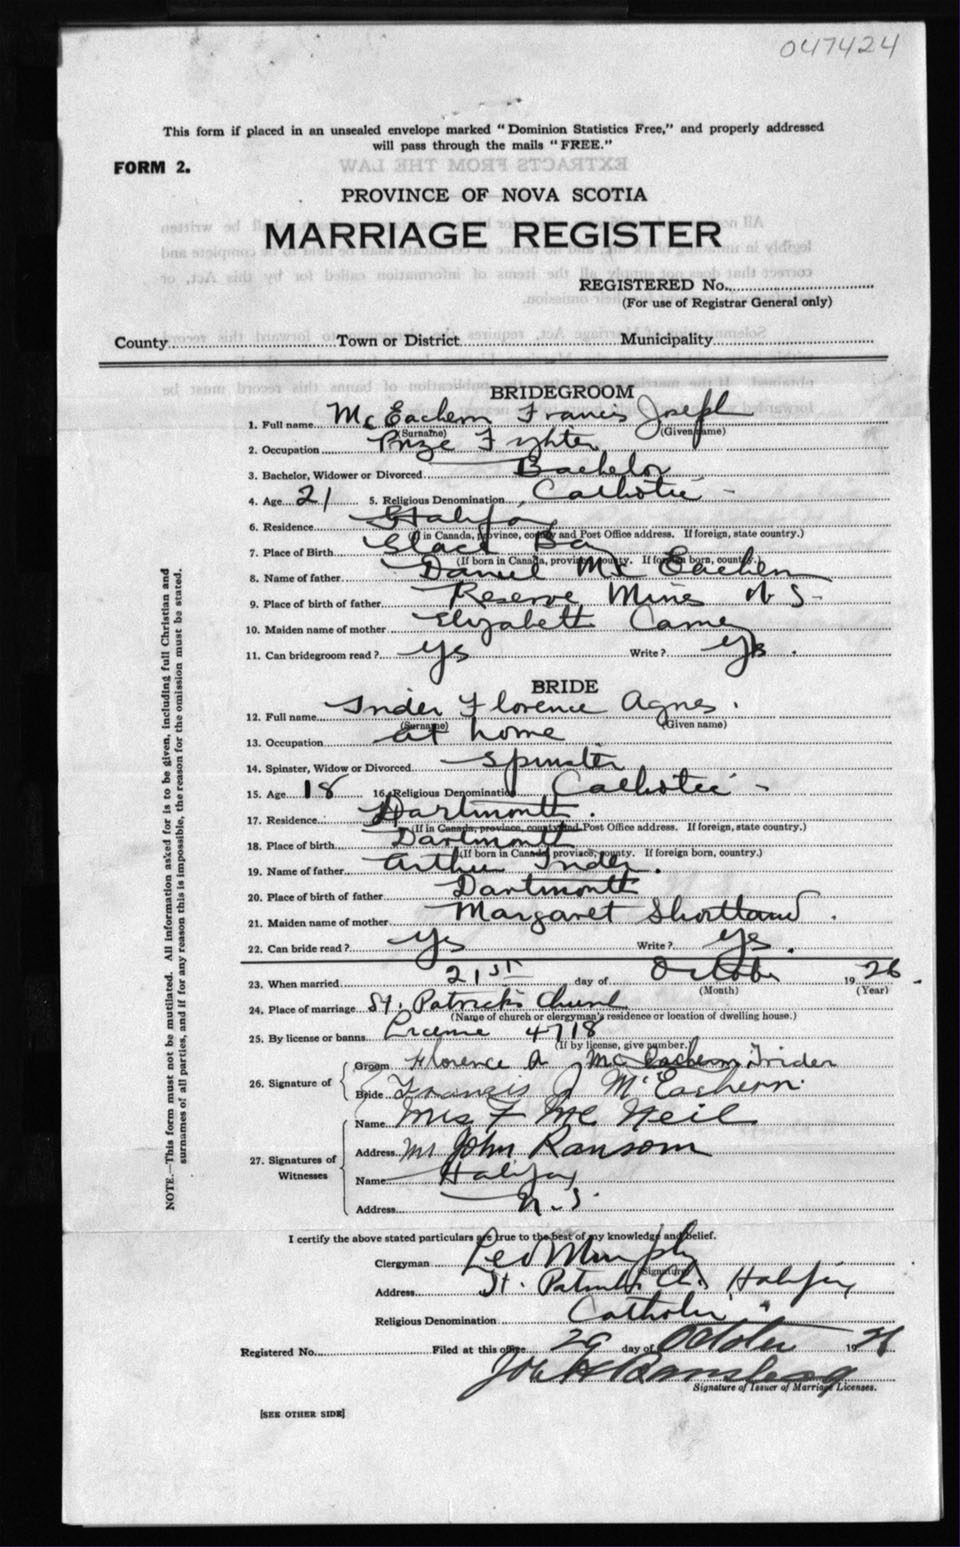 047424
This form if placed in an unsealed envelope marked "Dominion Statistics Free," and properly addressed
will pass through the mails "FREE."
FORM 2.
EXTRACTS FROM THE LAW
PROVINCE OF NOVA SCOTIA
MARRIAGE REGISTER
REGISTERED No.
(For use of Registrar General only)
County Town or District Municipality
BRIDEGROOM
1. Full name McEachern Francis Joseph
(Surname) (Given name)
2. Occupation Prize Fighter
3. Bachelor, Widower or Divorced Bachelor
4. Age 21 5. Religious Denomination Catholic -
6. Residence Halifax
(If in Canada, province, county and Post Office address. If foreign, state country.)
7. Place of Birth Glace Bay
(If born in Canada, province, county. If foreign born, country.)
8. Name of father Daniel McEachern
9. Place of birth of father Reserve Mines N S -
10. Maiden name of mother Elizabeth
11. Can bridegroom read? Yes Write? Yes.
BRIDE
12. Full name Inder Florence Agnes.
(Surname) (Given name)
13. Occupation at home
14. Spinster, Widow or Divorced Spinster
15. Age 18 16. Religious Denomination Catholic -
17. Residence Dartmouth.
(If in Canada, province, county and Post Office address. If foreign, state country.)
18. Place of birth Dartmouth
(If born in Canada, province, county. If foreign born, country.)
19. Name of father Arthur Inder.
20. Place of birth of father Dartmouth
21. Maiden name of mother Margaret Shortland.
22. Can bride read? Yes Write? Yes.
23. When married 21st day of October 1926.
(Month) (Year)
24. Place of marriage St. Patrick's Church
(Name of church or clergyman's residence or location of dwelling house.)
25. By license or banns License 4718
(If by license, give number.)
26. Signature of
Groom Florence A McEachern Inder
Bride Francis J McEachern.
27. Signatures of Witnesses
Name Mrs F McNeil
Address Mr John Ransom
Name Halifax
Address N.S.
I certify the above stated particulars are true to the best of my knowledge and belief.
Clergyman Leo Murphy
(Signature)
Address St. Patrick's Ch. Halifax
Religious Denomination Catholic
Registered No. Filed at this office 29 day of October 1926
Signature of Issuer of Marriage Licenses.
[SEE OTHER SIDE]
NOTE.—This form must not be mutilated. All information asked for is to be given, including full Christian and
surnames of all parties, and if for any reason this is impossible, the reason for the omission must be stated.